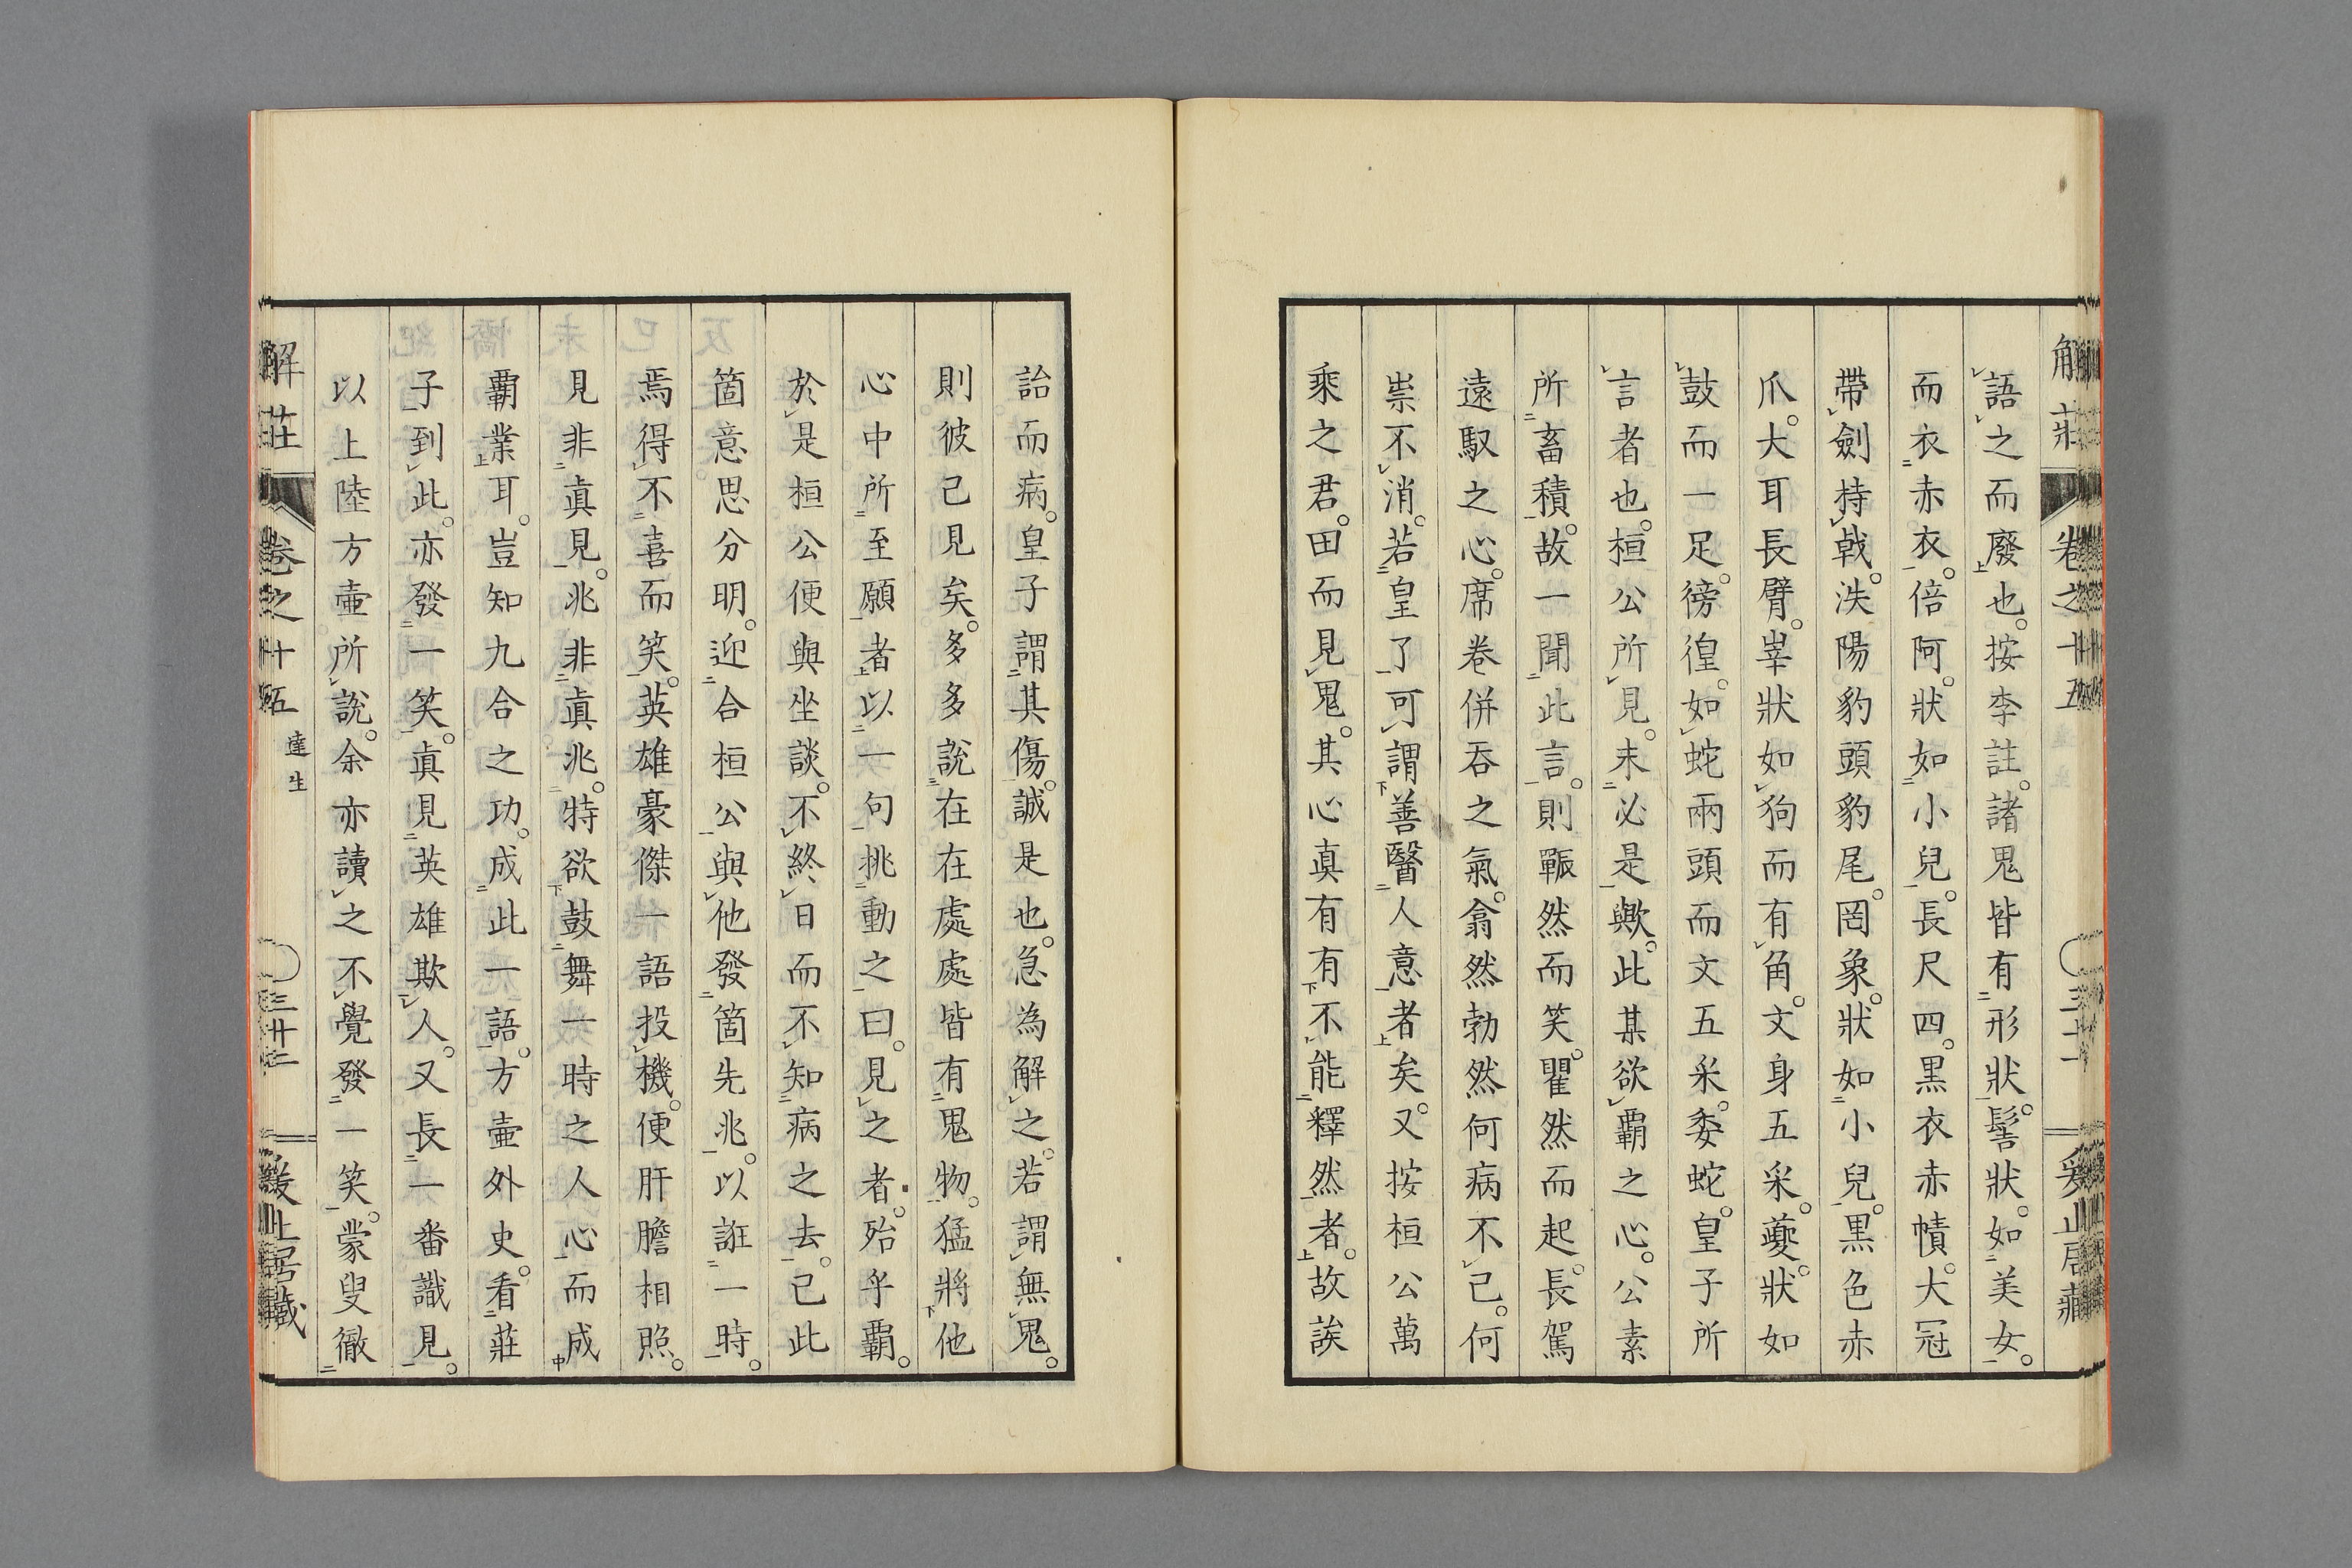 解莊 卷之十五 三十一
語之而廢也。按李註。諸鬼皆有形狀。髻狀。如美女。
而衣赤衣。倍阿。狀如小兒。長尺四。黑衣赤幘。大冠
帶劍持戟。泆陽豹頭豹尾。罔象。狀如小兒。黑色赤
爪。大耳長臂。峷狀如狗而有角。文身五采。夔。狀如
鼓而一足。徬徨。如蛇兩頭而文五采。委蛇。皇子所
言者也。桓公所見。未必是歟。此某欲霸之心。公素
所畜積。故一聞此言。則辴然而笑。瞿然而起。長駕
遠馭之心。席卷併吞之氣。翕然勃然何病不已。何
祟不消。若皇了可謂善醫人意者矣。又按桓公萬
乘之君。田而見鬼。其心真有有不能釋然者。故誒
詒而病。皇子謂其傷。誠是也。急為解之。若謂無鬼。
則彼己見矣。多多說在在處處皆有鬼物。猛將他
心中所至願者以一句挑動之曰。見之者。殆乎霸。
於是桓公便與坐談。不終日而不知病之去。已此
箇意思分明。迎合桓公與他發箇先兆。以誑一時。
焉得不喜而笑。英雄豪傑一語投機。便肝膽相照。
見非眞見。兆非眞兆。特欲鼓舞一時之人心而成
霸業耳。豈知九合之功。成此一語。方壺外史。看莊
子到此。亦發一笑。眞見英雄欺人。又長一番識見。
以上陸方壺所說。余亦讀之不覺發一笑。蒙叟徹
解莊 卷之十五 達生 三十二